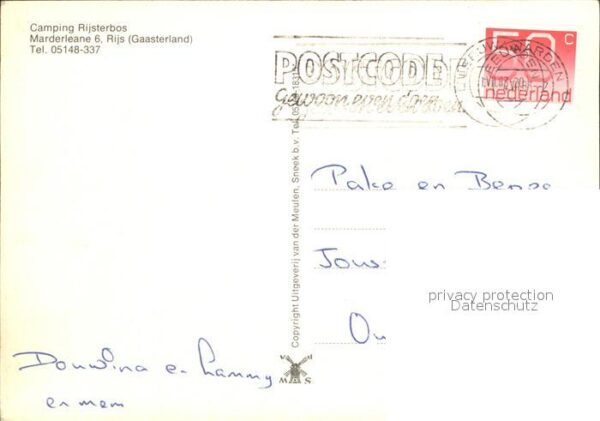 Camping Rijsterbos
Marderleane 6, Rijs (Gaasterland)
Tel. 05148-337
POSTCODE
gewoon even doen
50 c
nederland
LEEUWARDEN
Copyright Uitgeverij van der Meulen, Sneek b.v. Tel.
Pake en
Jouw
privacy protection
Datenschutz
Douwina en Lammy
en mem